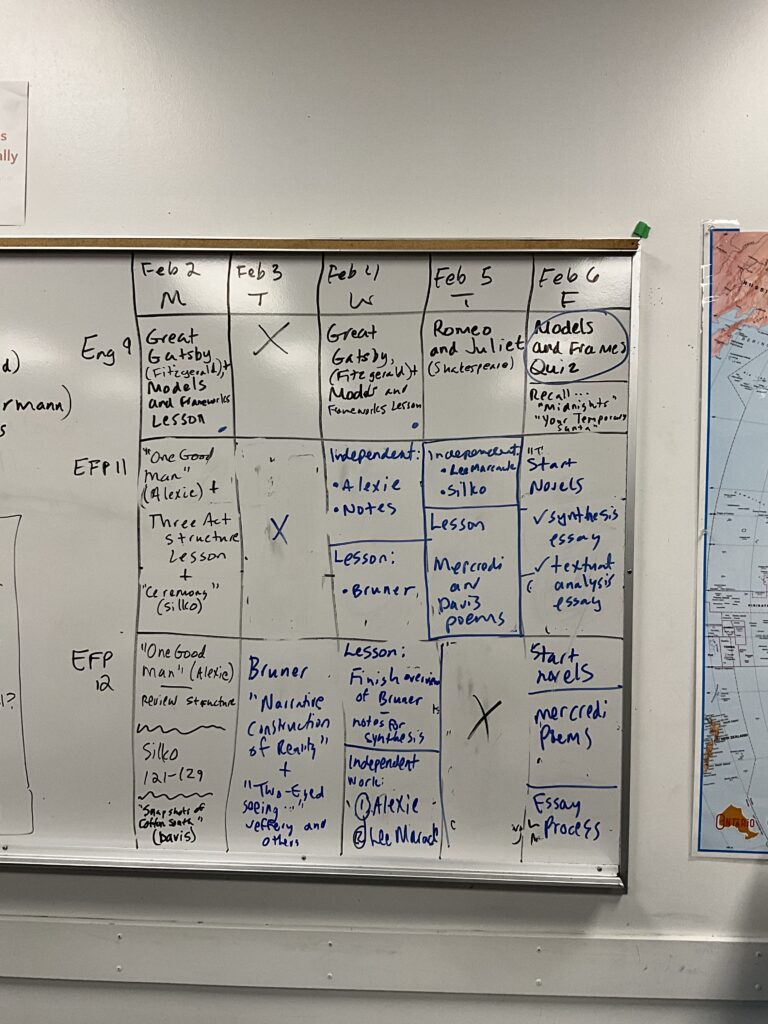 s
ally
Feb 2
M
Feb 3
T
Feb 4
W
Feb 5
T
Feb 6
F
d)
rmann)
s
l?
Eng 9
Great
Gatsby
(Fitzgerald) +
Models
and Frameworks
Lesson
X
Great
Gatsby,
(Fitzgerald) +
Models and
Frameworks Lesson
Romeo
and Juliet
(Shakespeare)
Models
and Frames
Quiz
Recall...
"Midnights"
"Your Temporary
Santa"
EFP 11
"One Good
Man"
(Alexie) +
Three Act
structure
Lesson
+
"Ceremony"
(Silko)
X
Independent:
• Alexie
• Notes
Lesson:
• Bruner
Independent:
• Lee Maracle
• Silko
Lesson
Mercredi
and
Davis
poems
Start
Novels
✓ synthesis
essay
✓ textual
analysis
essay
EFP
12
"One Good
Man" (Alexie)
Review Structure
Silko
121-129
"Snapshots of
South"
(Davis)
Bruner
"Narrative
Construction
of Reality"
+
"Two-Eyed
Seeing..."
Jeffery and
others
Lesson:
Finish overview
of Bruner
–
notes for
synthesis
Independent
Work:
① Alexie
② Lee Marack
X
Start
novels
mercredi
Poems
Essay
Process
ONTARIO